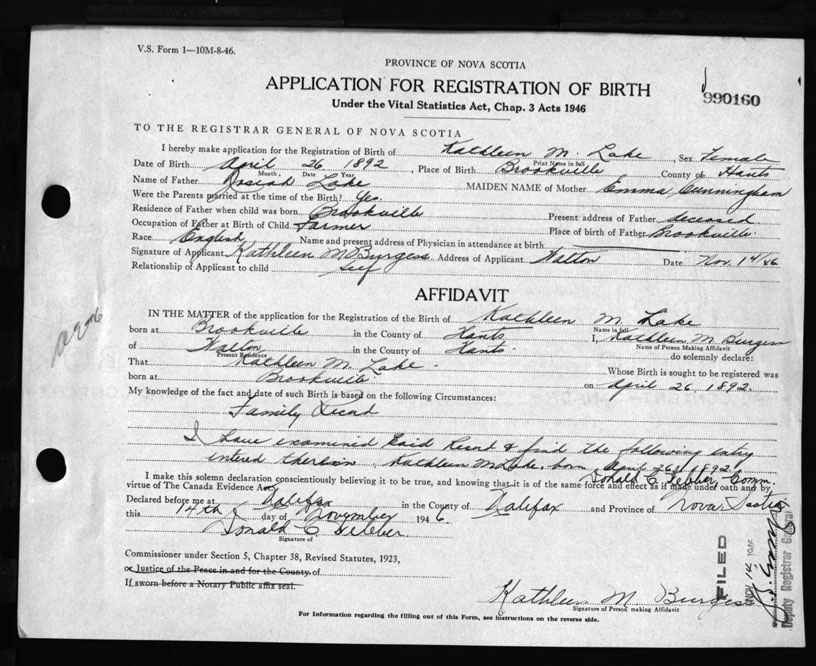 V.S. Form 1—10M-8-46.
PROVINCE OF NOVA SCOTIA
APPLICATION FOR REGISTRATION OF BIRTH
990160
Under the Vital Statistics Act, Chap. 3 Acts 1946
TO THE REGISTRAR GENERAL OF NOVA SCOTIA
I hereby make application for the Registration of Birth of Kathleen M. Lake, Sex Female
Print Name in full
Date of Birth April 26 1892, Place of Birth Brookville County of Hants
Month, Date Year
Name of Father Josiah Lake MAIDEN NAME of Mother Emma Cunningham
Were the Parents married at the time of the Birth? Yes.
Residence of Father when child was born Brookville Present address of Father deceased
Occupation of Father at Birth of Child Farmer Place of birth of Father Brookville.
Race English Name and present address of Physician in attendance at birth
Signature of Applicant Kathleen M Burgess Address of Applicant Walton Date Nov. 14/46
Relationship of Applicant to child Self
AFFIDAVIT
IN THE MATTER of the application for the Registration of Birth of Kathleen M. Lake
Name in full
born at Brookville in the County of Hants I, Kathleen M Burgess
Name of Person Making Affidavit
of Walton in the County of Hants. do solemnly declare:
Present Residence
That Kathleen M. Lake. Whose Birth is sought to be registered was
born at Brookville on April 26, 1892.
My knowledge of the fact and date of such Birth is based on the following Circumstances:
Family Record
I have examined said Record & find the following entry
entered therein. Kathleen M Lake, born April 26, 1892
Donald C. Comm.
I make this solemn declaration conscientiously believing it to be true, and knowing that it is of the same force and effect as if made under oath and by
virtue of The Canada Evidence Act.
Declared before me at Halifax in the County of Halifax and Province of Nova Scotia
this 14th day of November 1946
Donald C.
Signature of
Commissioner under Section 5, Chapter 38, Revised Statutes, 1923,
or Justice of the Peace in and for the County of
If sworn before a Notary Public affix seal.
Kathleen M. Burgess
Signature of Person making Affidavit
For Information regarding the filling out of this Form, see instructions on the reverse side.
FILED
NOV 14 1946
Deputy Registrar General